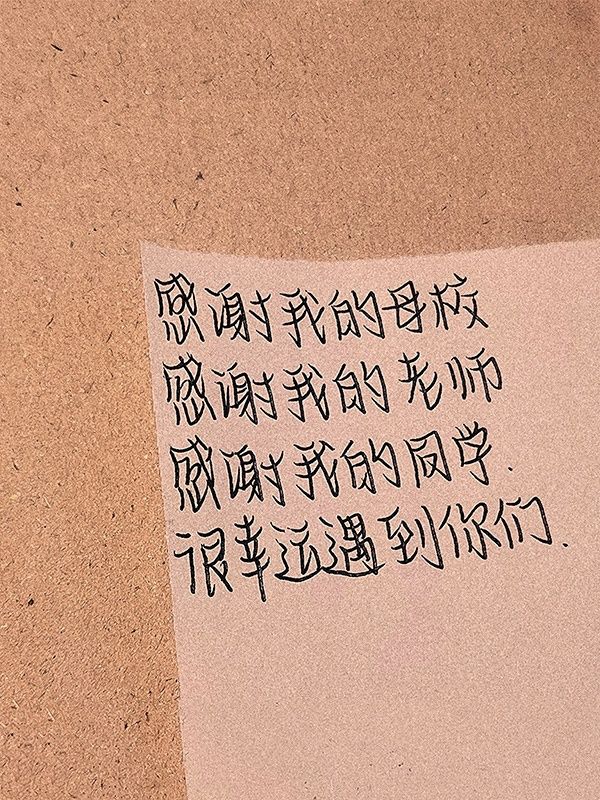 感谢我的母校
感谢我的老师
感谢我的同学.
很幸运遇到你们.